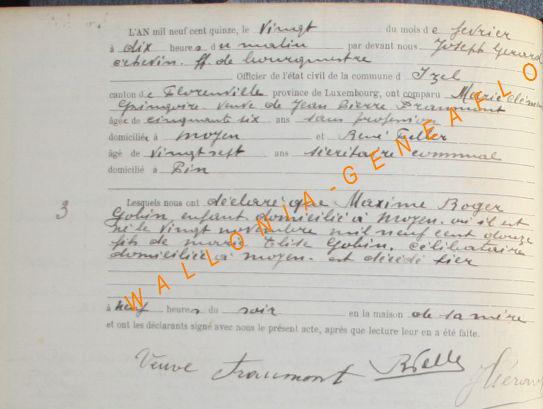 L'AN mil neuf cent quinze, le vingt du mois de fevrier
à dix heures du matin par devant nous Joseph Gerard
échevin ff de bourgmestre
Officier de l'état civil de la commune d'Izel
canton de Florenville province de Luxembourg, ont comparu Marie
Gringoire veuve de Jean Pierre Fraumont
âgée de cinquante six ans sans profession
domiciliée à moyen et René Feller
âgé de vingt sept ans secrétaire communal
domicilié à Pin
3
Lesquels nous ont déclaré que Maxime Roger
Gobin enfant domicilié à moyen où il est
né le vingt novembre mil neuf cent douze
fils de marie Elise Gobin, célibataire
domiciliée à moyen est décédé hier
à neuf heures du soir en la maison de sa mère
et ont les déclarants signé avec nous le présent acte, après que lecture leur en a été faite.
Veuve Fraumont
WALLONIA-GENEAFLO